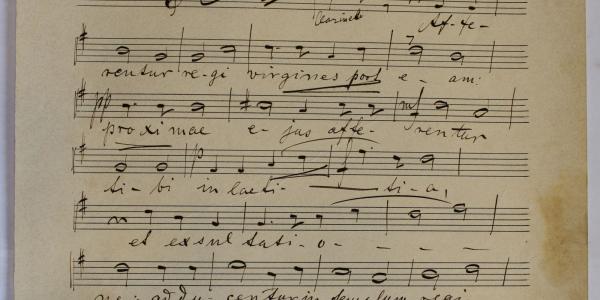 Clarinete Af-fe-
rentur re-gi virgines post e-am:
pp proximae e-jus affe- mf rentur
ti-bi p in laeti- f ti-a,
et exsul tati-o- - - -
ne: addu-centur in templum regi